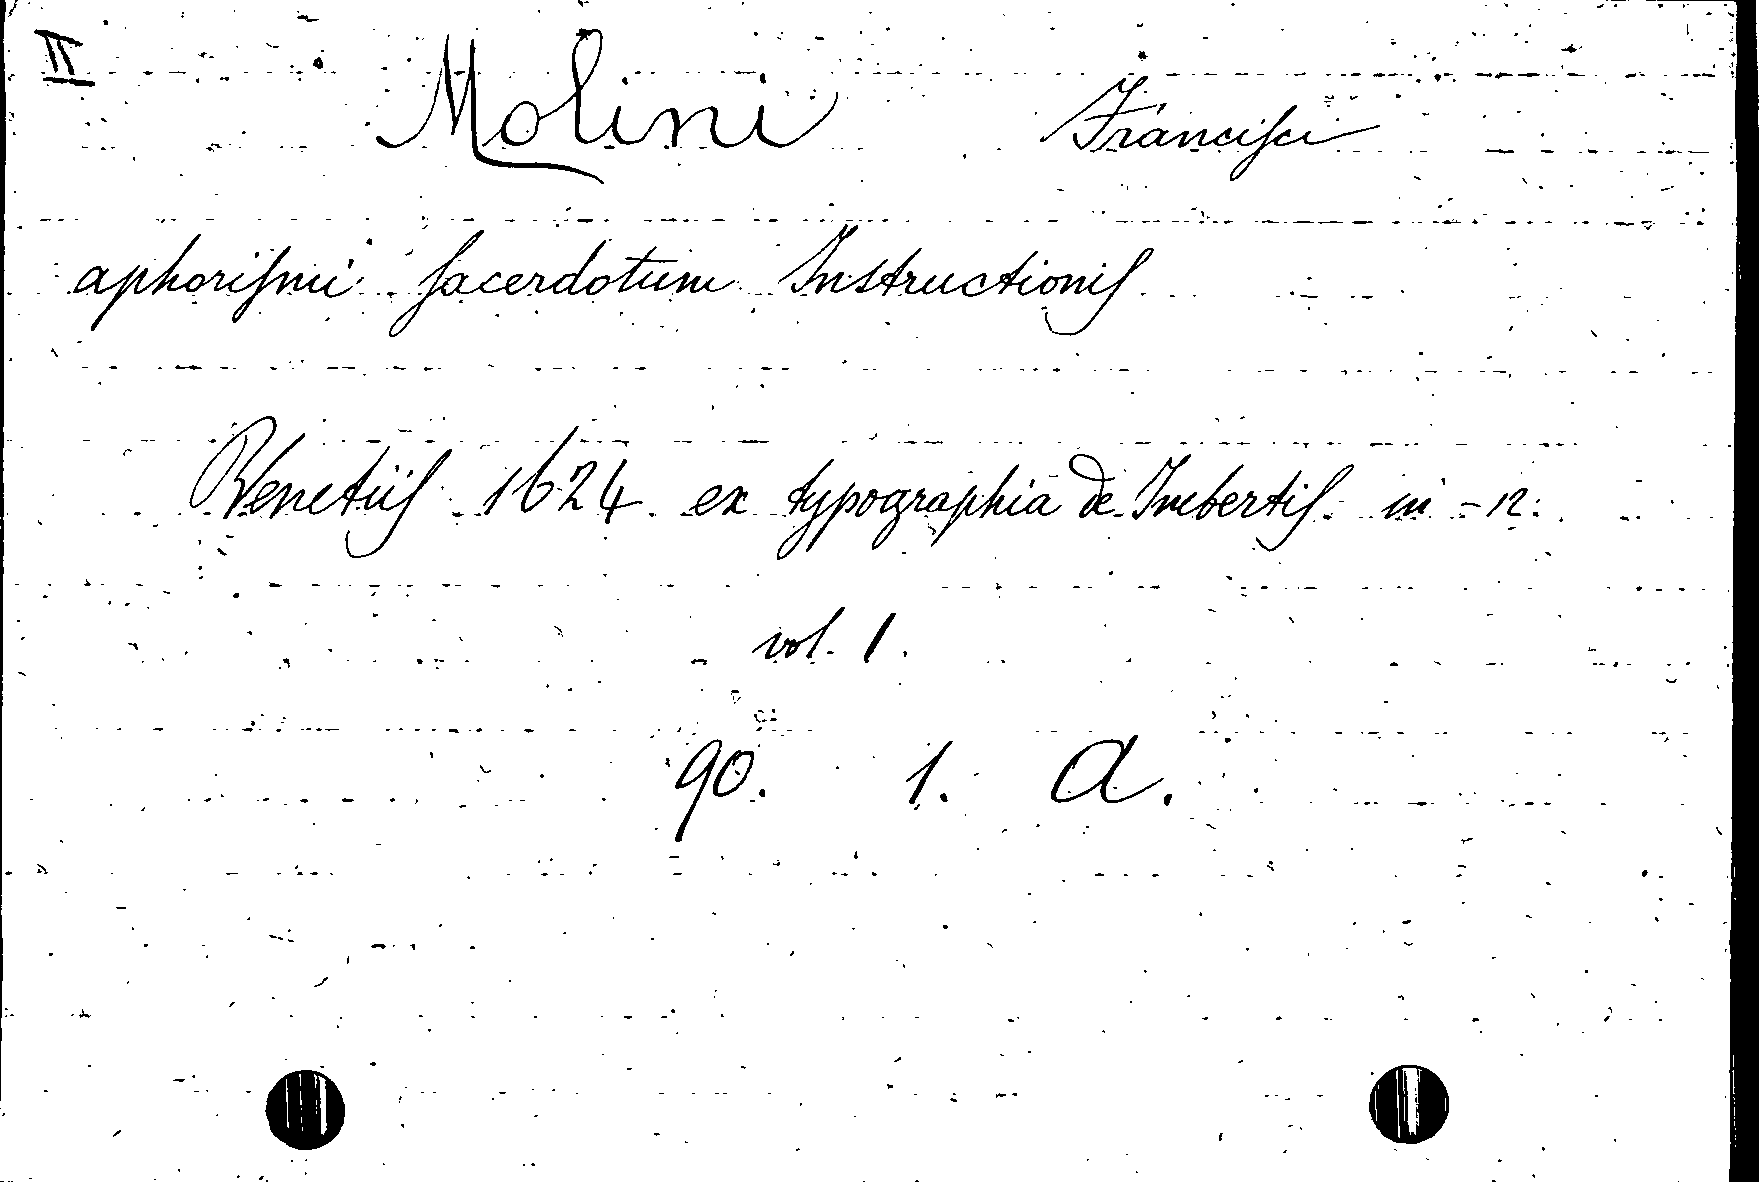 II Molini Francisci
aphorismi sacerdotum Instructionis
Venetiis 1624 ex typographia de Imbertis in-12.
vol. 1.
90. 1. A.